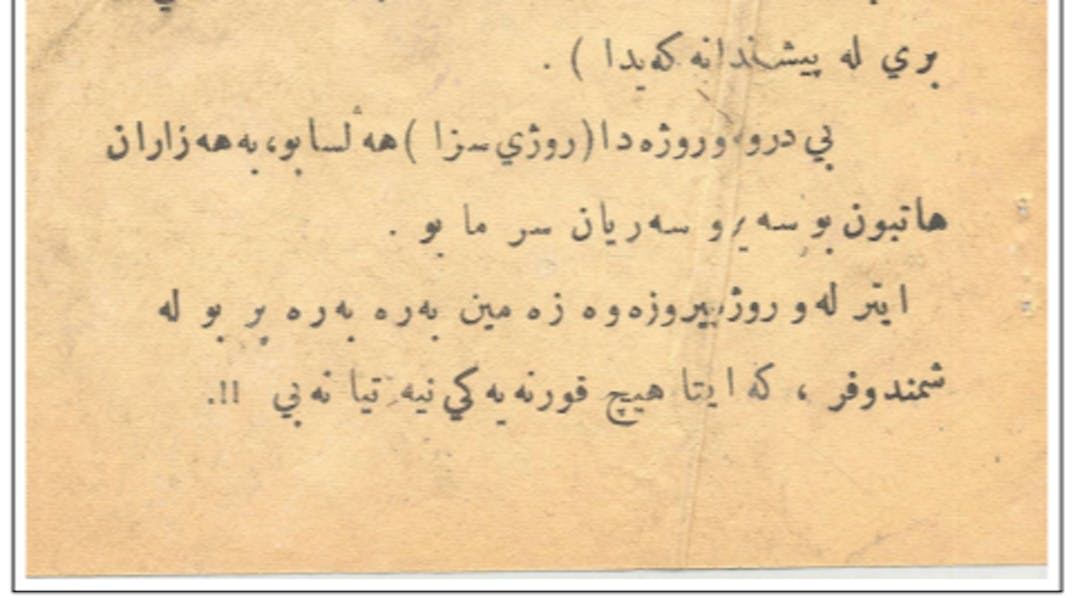 بري له پيشندانه كه يدا ) .
بي درو، وروژه دا (روژي سزا ) هه لسا بو، به هه زاران
هاتبون بو سه ير و سه ريان سر ما بو .
ايتر له و روژ پيروزه وه زه مين به ره به ره پر بو له
شمندوفر ، كه ايتا هيچ قورنه يه كي نيه تيا نه بي !!.